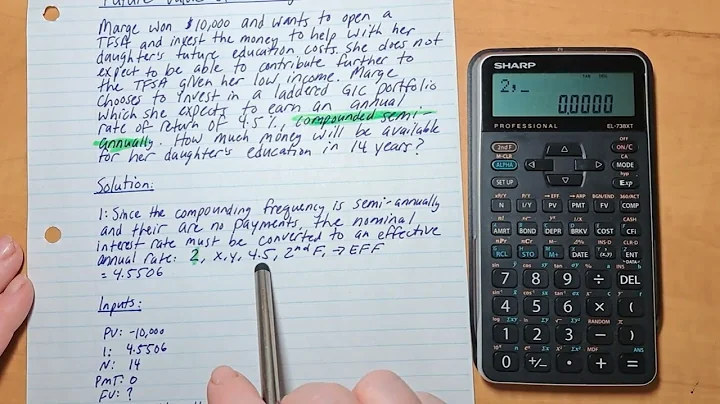 Marge won $10,000 and wants to open a
TFSA and invest the money to help with her
daughter's future education costs. She does not
expect to be able to contribute further to
the TFSA given her low income. Marge
chooses to invest in a laddered GIC portfolio
which she expects to earn an annual
rate of return of 4.5%, compounded semi-
annually. How much money will be available
for her daughter's education in 14 years?
Solution:
1: Since the compounding frequency is semi-annually
and their are no payments, the nominal
interest rate must be converted to an effective
annual rate: 2, x,y, 4.5, 2ndF, → EFF
= 4.5506
Inputs:
PV: -10,000
I: 4.5506
N: 14
PMT: 0
FV: ?
SHARP
2,_
0.0000
PROFESSIONAL EL-738XT
2nd F
OFF
ON/C
M-CLR
ALPHA
CA
MODE
SET UP
hyp
Exp
x P/Y ÷ P/Y → EFF → APR BGN/END 360/ACT
N I/Y PV PMT FV COMP
AMRT BOND CFi DATA
RCL STO M+ DATE (x,y) ENT
7 8 9 ÷ DEL
4 5 6 × (
RANDOM
1 2 3 − )
0 +/− • + =